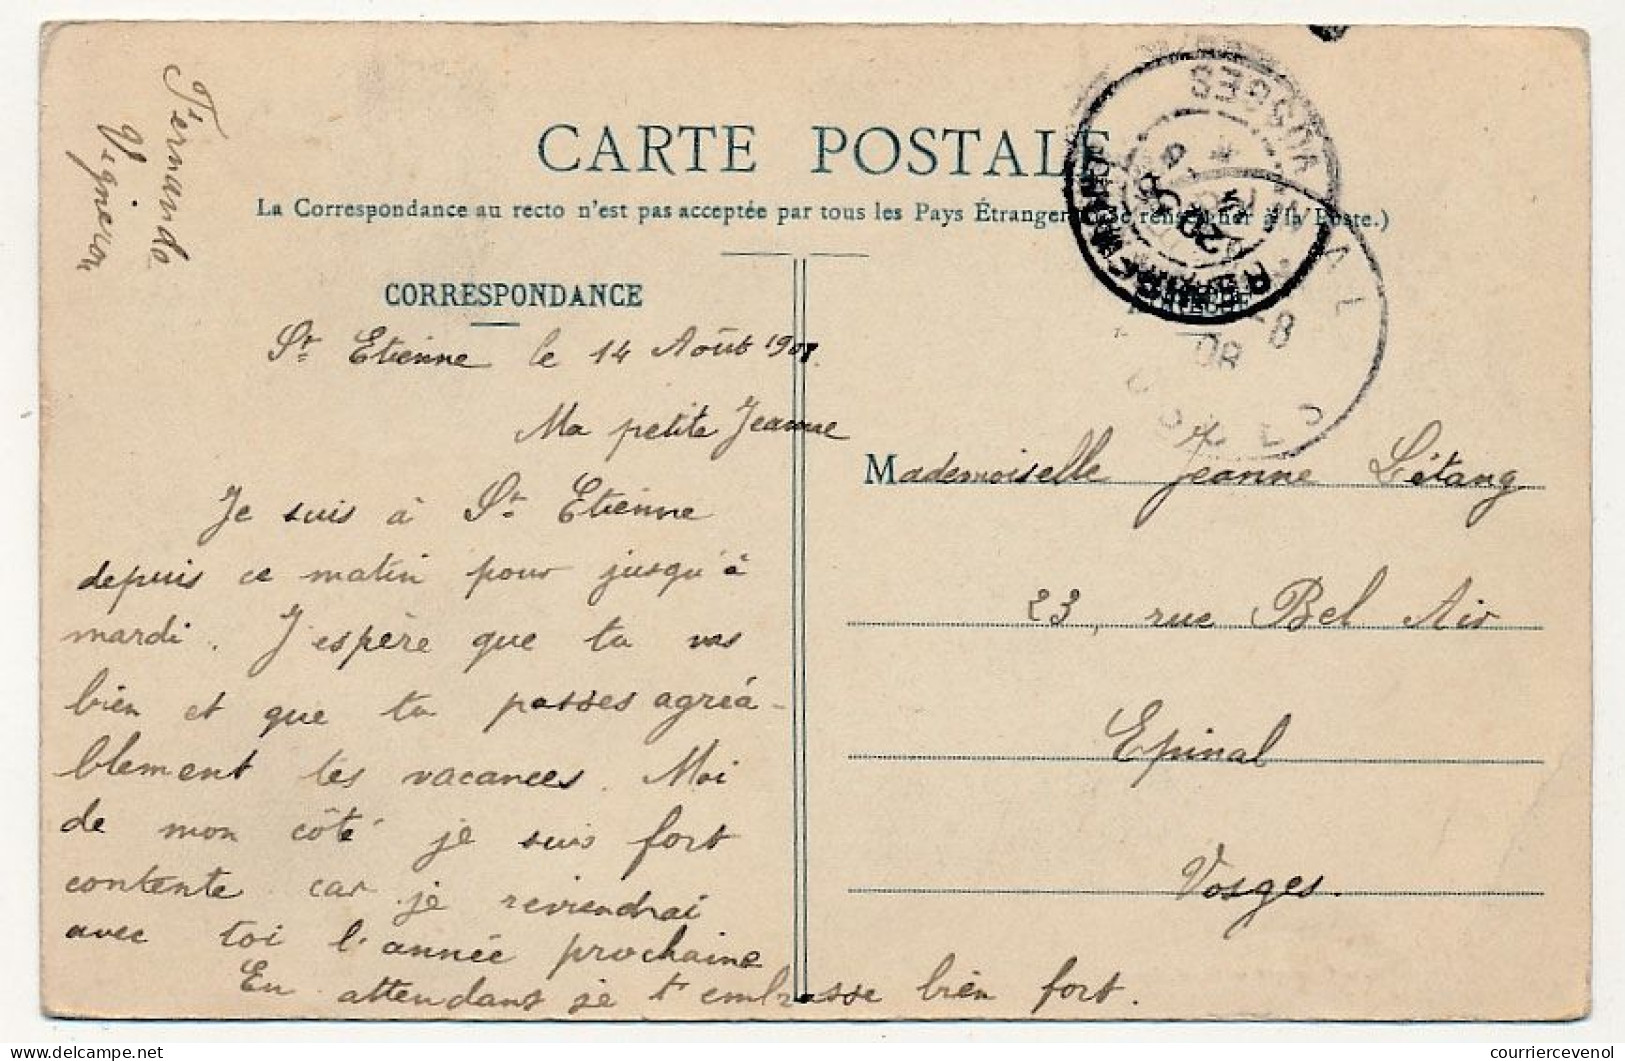 Fernande
Vigneron
CARTE POSTALE
La Correspondance au recto n'est pas acceptée par tous les Pays Étrangers (Se renseigner à la Poste.)
CORRESPONDANCE
St Etienne le 14 Août 1908.
Ma petite Jeanne
Je suis à St Etienne
depuis ce matin pour jusqu'à
mardi. J'espère que tu vas
bien et que tu passes agréa-
blement tes vacances. Moi
de mon côté je suis fort
contente car je reviendrai
avec toi l'année prochaine
En attendant je t'embrasse bien fort.
VOSGES
REMIREMONT
20
08
Mademoiselle Jeanne Létang
23, rue Bel Air
Epinal
Vosges.
delcampe.net
courriercevenol